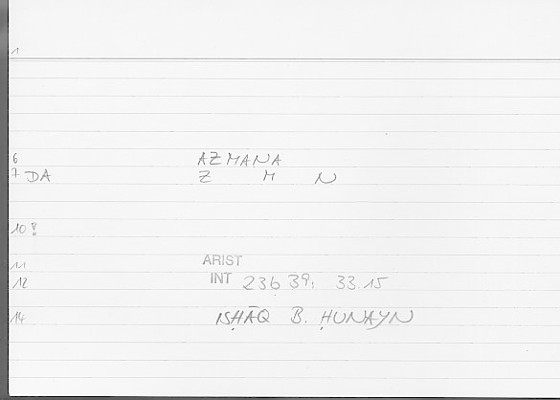 1
6 AZMANA
7 DA Z M N
10 !
11 ARIST
12 INT 23b 39; 33.15
14 ISḤĀQ B. ḤUNAYN